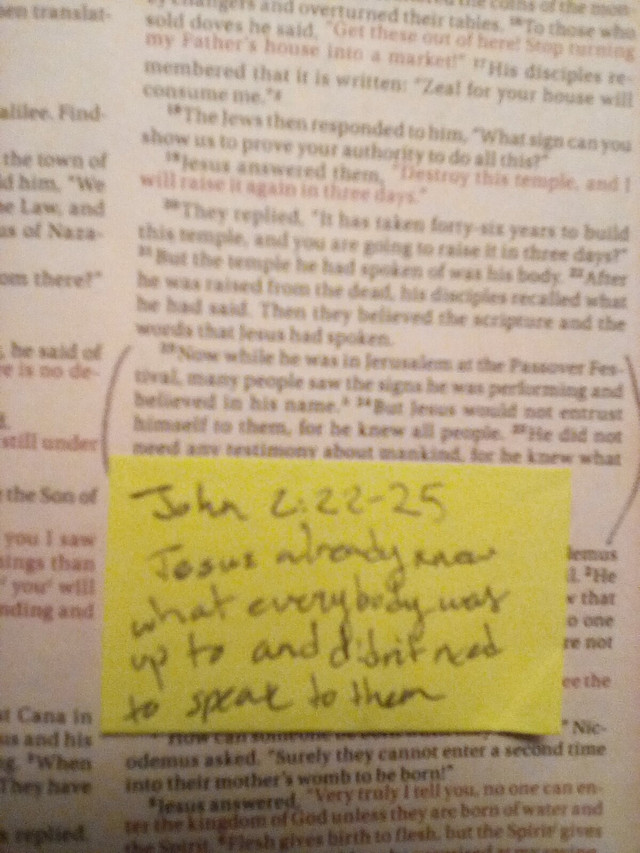 en translat-
alilee. Find-
the town of
d him, "We
e Law, and
us of Naza-
om there?"
he said of
e is no de-
still under
the Son of
you I saw
ings than
you' will
nding and
at Cana in
us and his
g. ³When
They have
replied.
changers and overturned their tables. ¹⁶To those who
sold doves he said, "Get these out of here! Stop turning
my Father's house into a market!" ¹⁷His disciples re-
membered that it is written: "Zeal for your house will
consume me."
¹⁸The Jews then responded to him, "What sign can you
show us to prove your authority to do all this?"
¹⁹Jesus answered them, "Destroy this temple, and I
will raise it again in three days."
²⁰They replied, "It has taken forty-six years to build
this temple, and you are going to raise it in three days?"
²¹But the temple he had spoken of was his body. ²²After
he was raised from the dead, his disciples recalled what
he had said. Then they believed the scripture and the
words that Jesus had spoken.
²³Now while he was in Jerusalem at the Passover Fes-
tival, many people saw the signs he was performing and
believed in his name. ²⁴But Jesus would not entrust
himself to them, for he knew all people. ²⁵He did not
need any testimony about mankind, for he knew what
John 2:22-25
Jesus already knew
what everybody was
up to and didn't need
to speak to them
demus
²He
that
o one
re not
ee the
"How can someone be born Nic-
odemus asked. "Surely they cannot enter a second time
into their mother's womb to be born!"
⁵Jesus answered, "Very truly I tell you, no one can en-
ter the kingdom of God unless they are born of water and
the Spirit. ⁶Flesh gives birth to flesh, but the Spirit gives